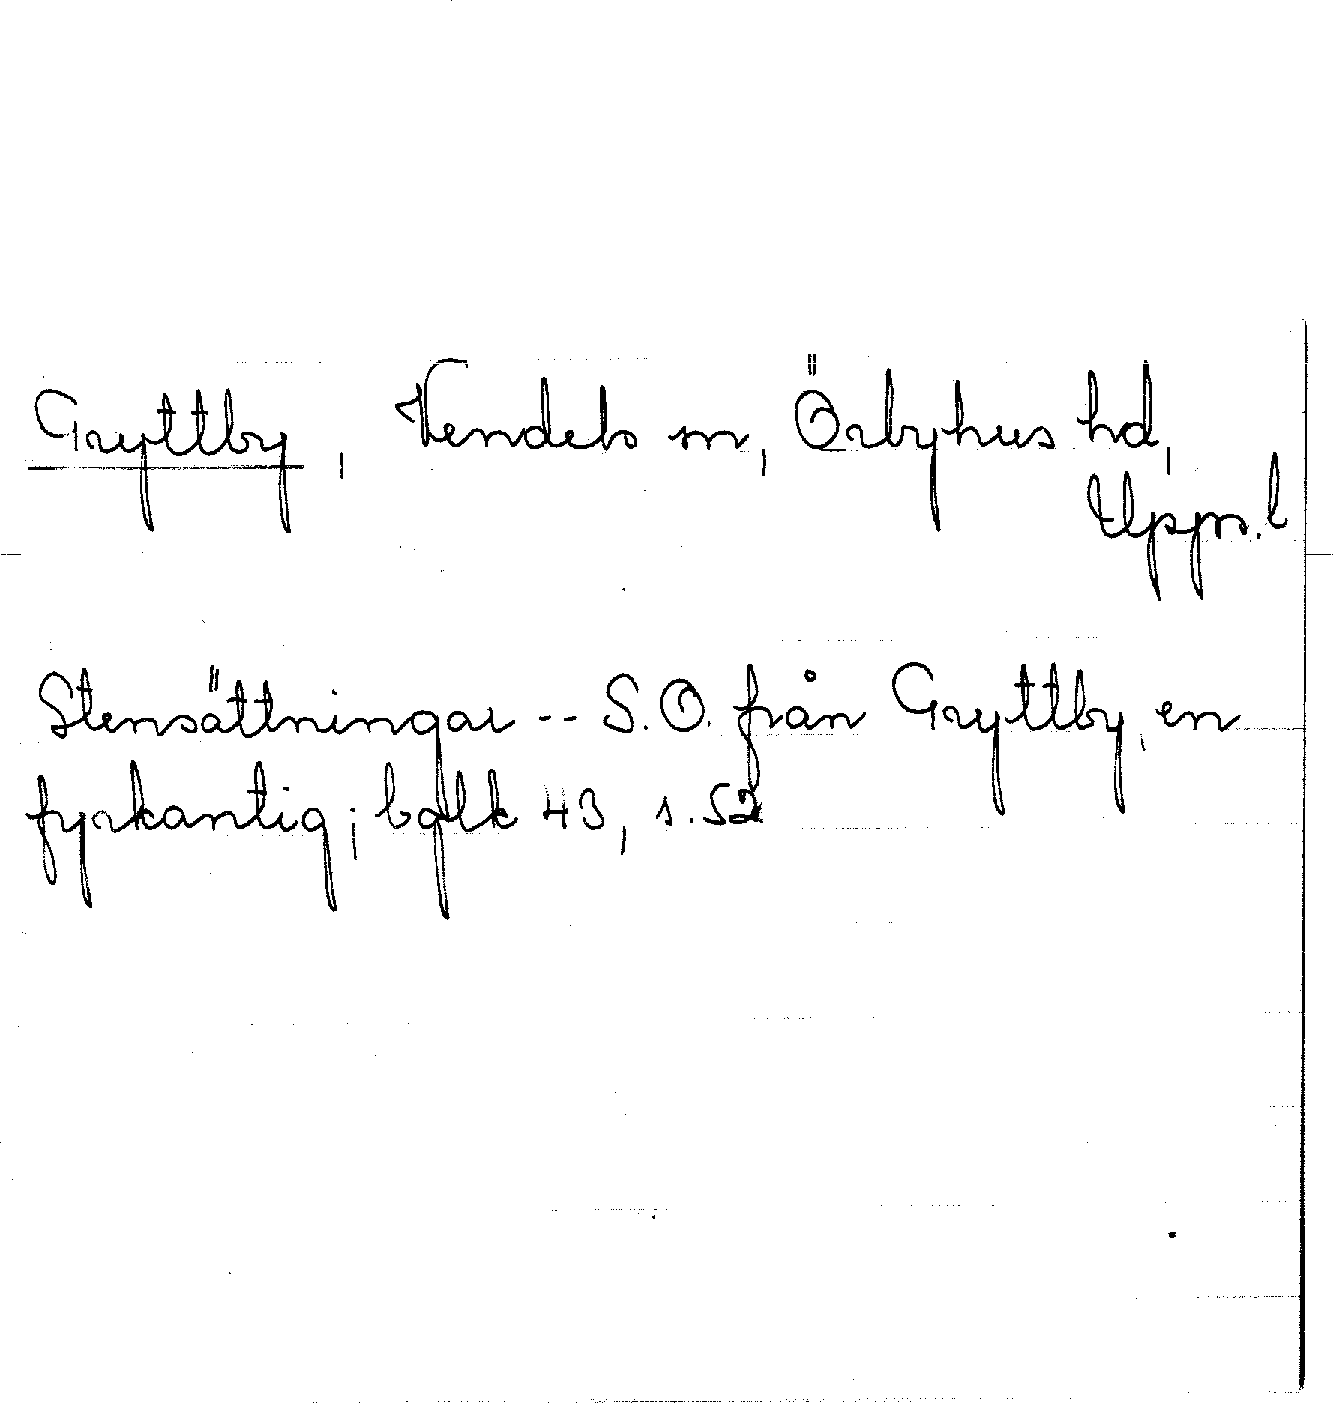 Gryttby, Vendels sn, Örbyhus hd,
Upps. l
Stensättningar -- S.O. från Gryttby, en
fyrkantig; bqlk 43, s. 52